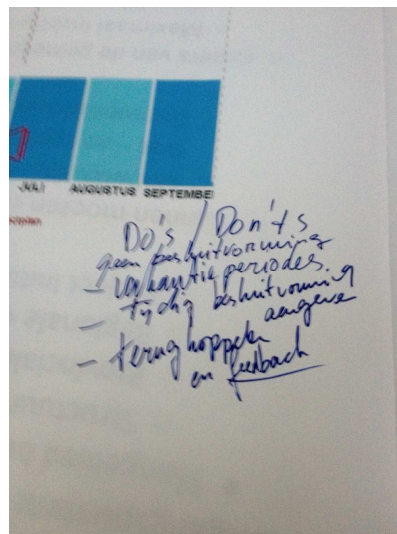 JULI AUGUSTUS SEPTEMBER
DO's / Don'ts
geen besluitvorming
- vakantieperiodes
- tijdig besluitvorming
aangeven
- terughoppelen
en feedback